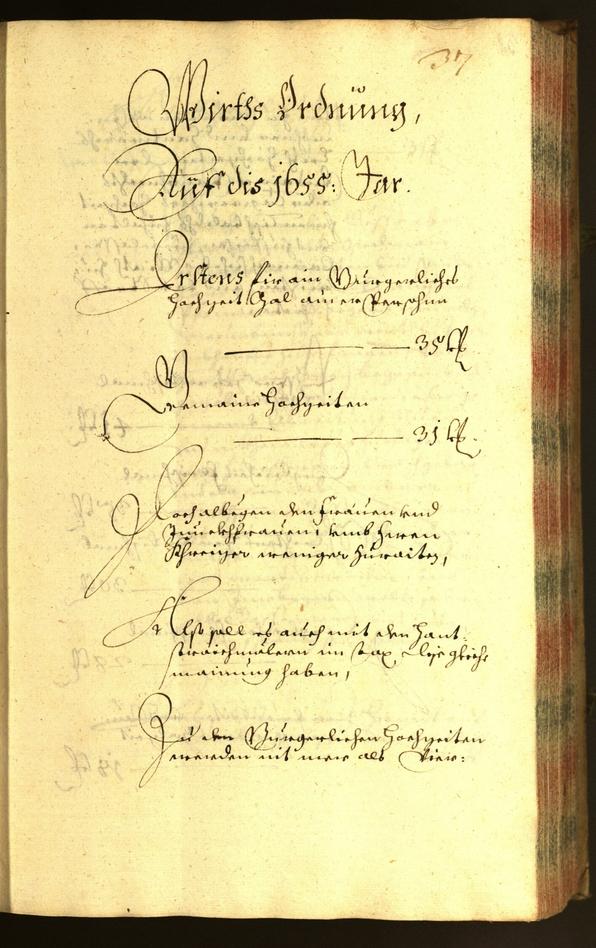 37
Wirths Ordnung,
Auf dis 1655: Jar.
Erstens fir ain Burgerliches
Hochzeit Mal ainer Persohn
35 kr
Gemaine Hochzeiten
31 kr.
Doch albegen den Frauen vnd
Junckhfrauen, vmb Siben
Khreizer weniger zuraiten,
Also soll es auch mit den Hant-
straichmälern im Tax, die gleiche
mainung haben,
Zu den Burgerlichen Hochzeiten
werden nit mer als Vier: